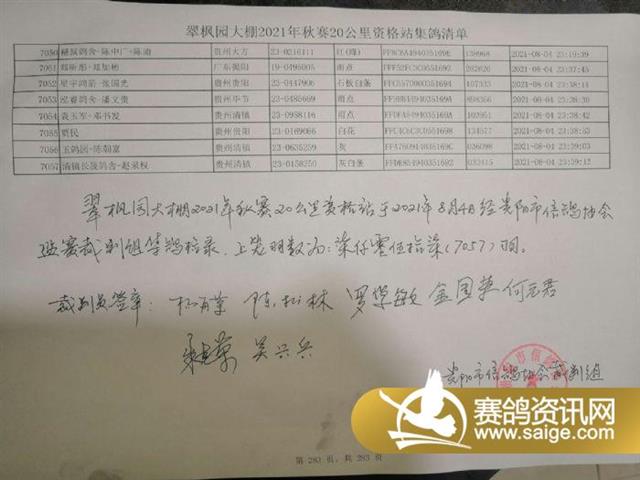 翠枫园大棚2021年秋赛20公里资格站集鸽清单
7050 陈中广-陈涌 贵州大方 23-0216111 红(绛) 138968 2021-08-04 23:19:39
7051 郑斯彤-郑加彬 广东揭阳 19-0495005 雨点 202626 2021-08-04 23:37:45
7052 星宇鸿箭-张国光 贵州贵阳 23-0447906 石板白条 107333 2021-08-04 23:38:14
7053 泓睿鸽舍-潘文贵 贵州毕节 23-0485669 雨点 898366 2021-08-04 23:38:30
7054 袁玉军-邓书发 贵州清镇 23-0958116 雨点 102951 2021-08-04 23:38:42
7055 贾民 贵州贵阳 23-0169066 白花 134577 2021-08-04 23:38:53
7056 玉鸽园-陈朝富 贵州清镇 23-0635259 灰 036098 2021-08-04 23:39:03
7057 清镇长晟鸽舍-赵录权 贵州清镇 23-0158250 灰白条 032415 2021-08-04 23:39:12
翠枫园大棚2021年秋赛20公里资格站于2021年8月4日经贵阳市信鸽协会
监赛裁判组集鸽档录,上笼羽数为:柒仟零伍拾柒(7057)羽。
裁判员签章: 陈松林 罗学敏 金国华 何元君
吴兴兵
贵阳市信鸽协会裁判组
第 283 页,共 283 页
赛鸽资讯网
www.saige.com